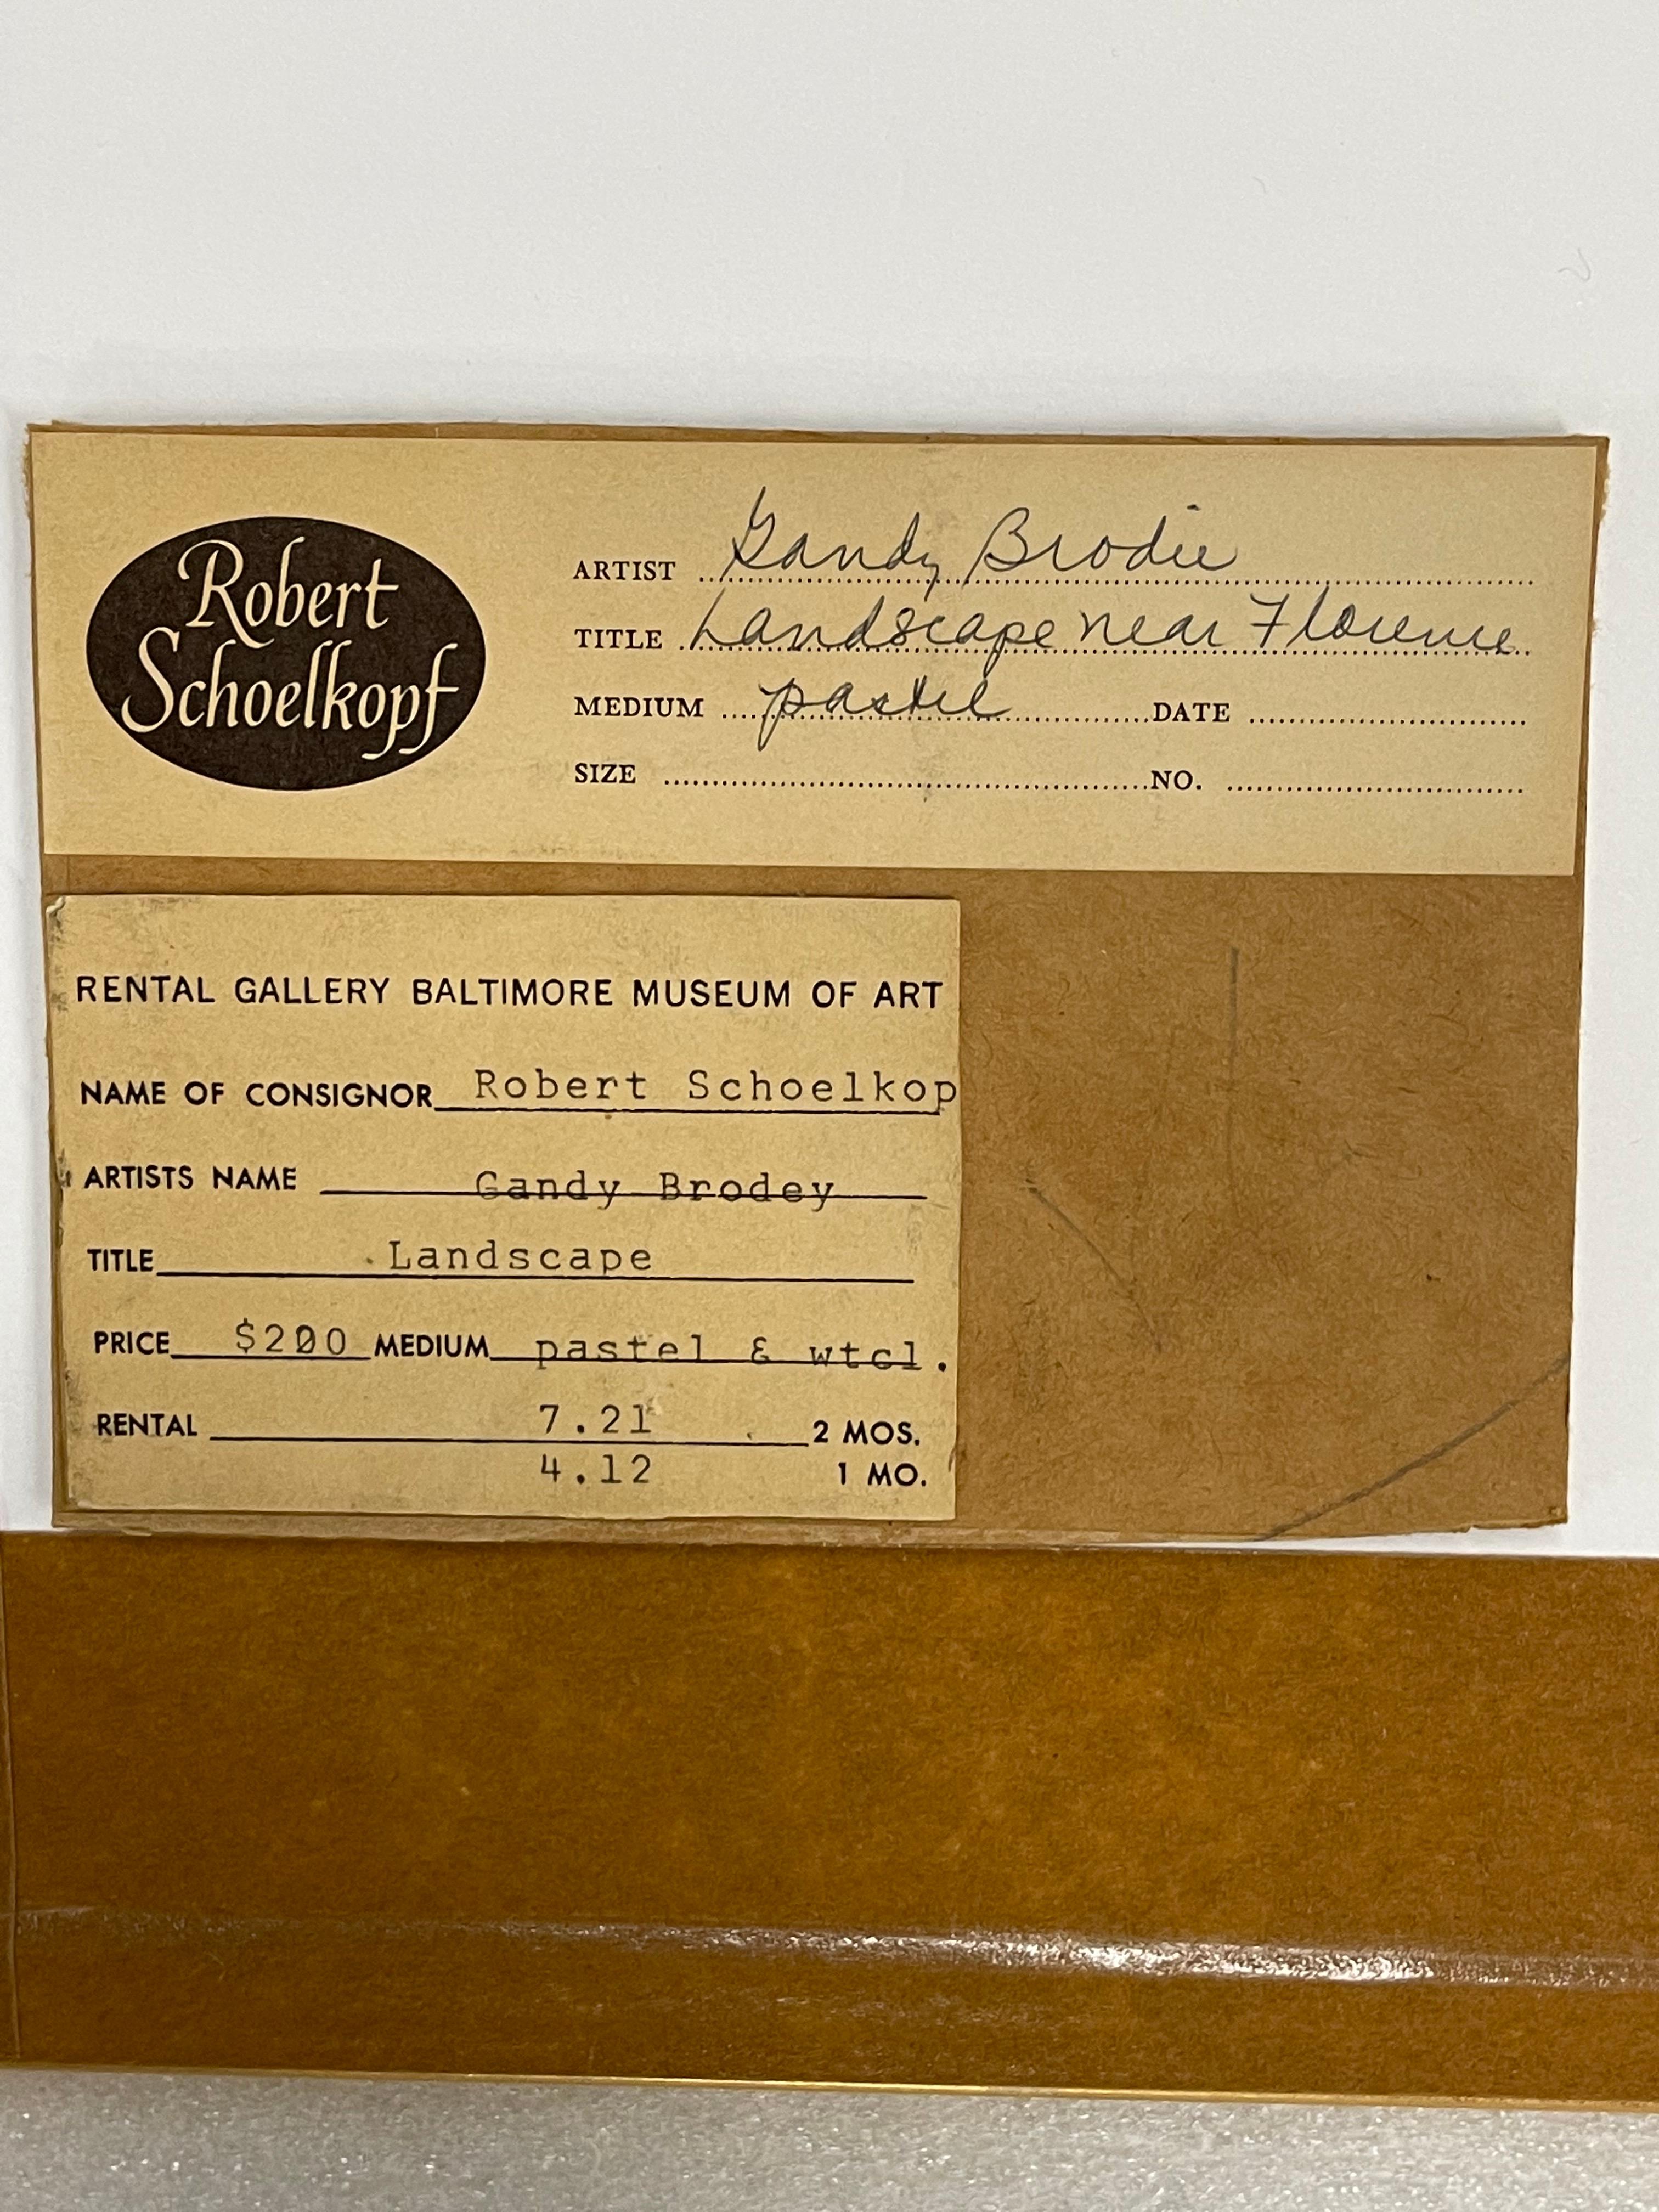 Robert
Schoelkopf
ARTIST Gandy Brodie
TITLE Landscape near Florence
MEDIUM pastel DATE
SIZE NO.
RENTAL GALLERY BALTIMORE MUSEUM OF ART
NAME OF CONSIGNOR Robert Schoelkop
ARTISTS NAME Gandy Brodey
TITLE Landscape
PRICE $200 MEDIUM pastel & wtcl.
RENTAL 7.21 2 MOS.
4.12 1 MO.